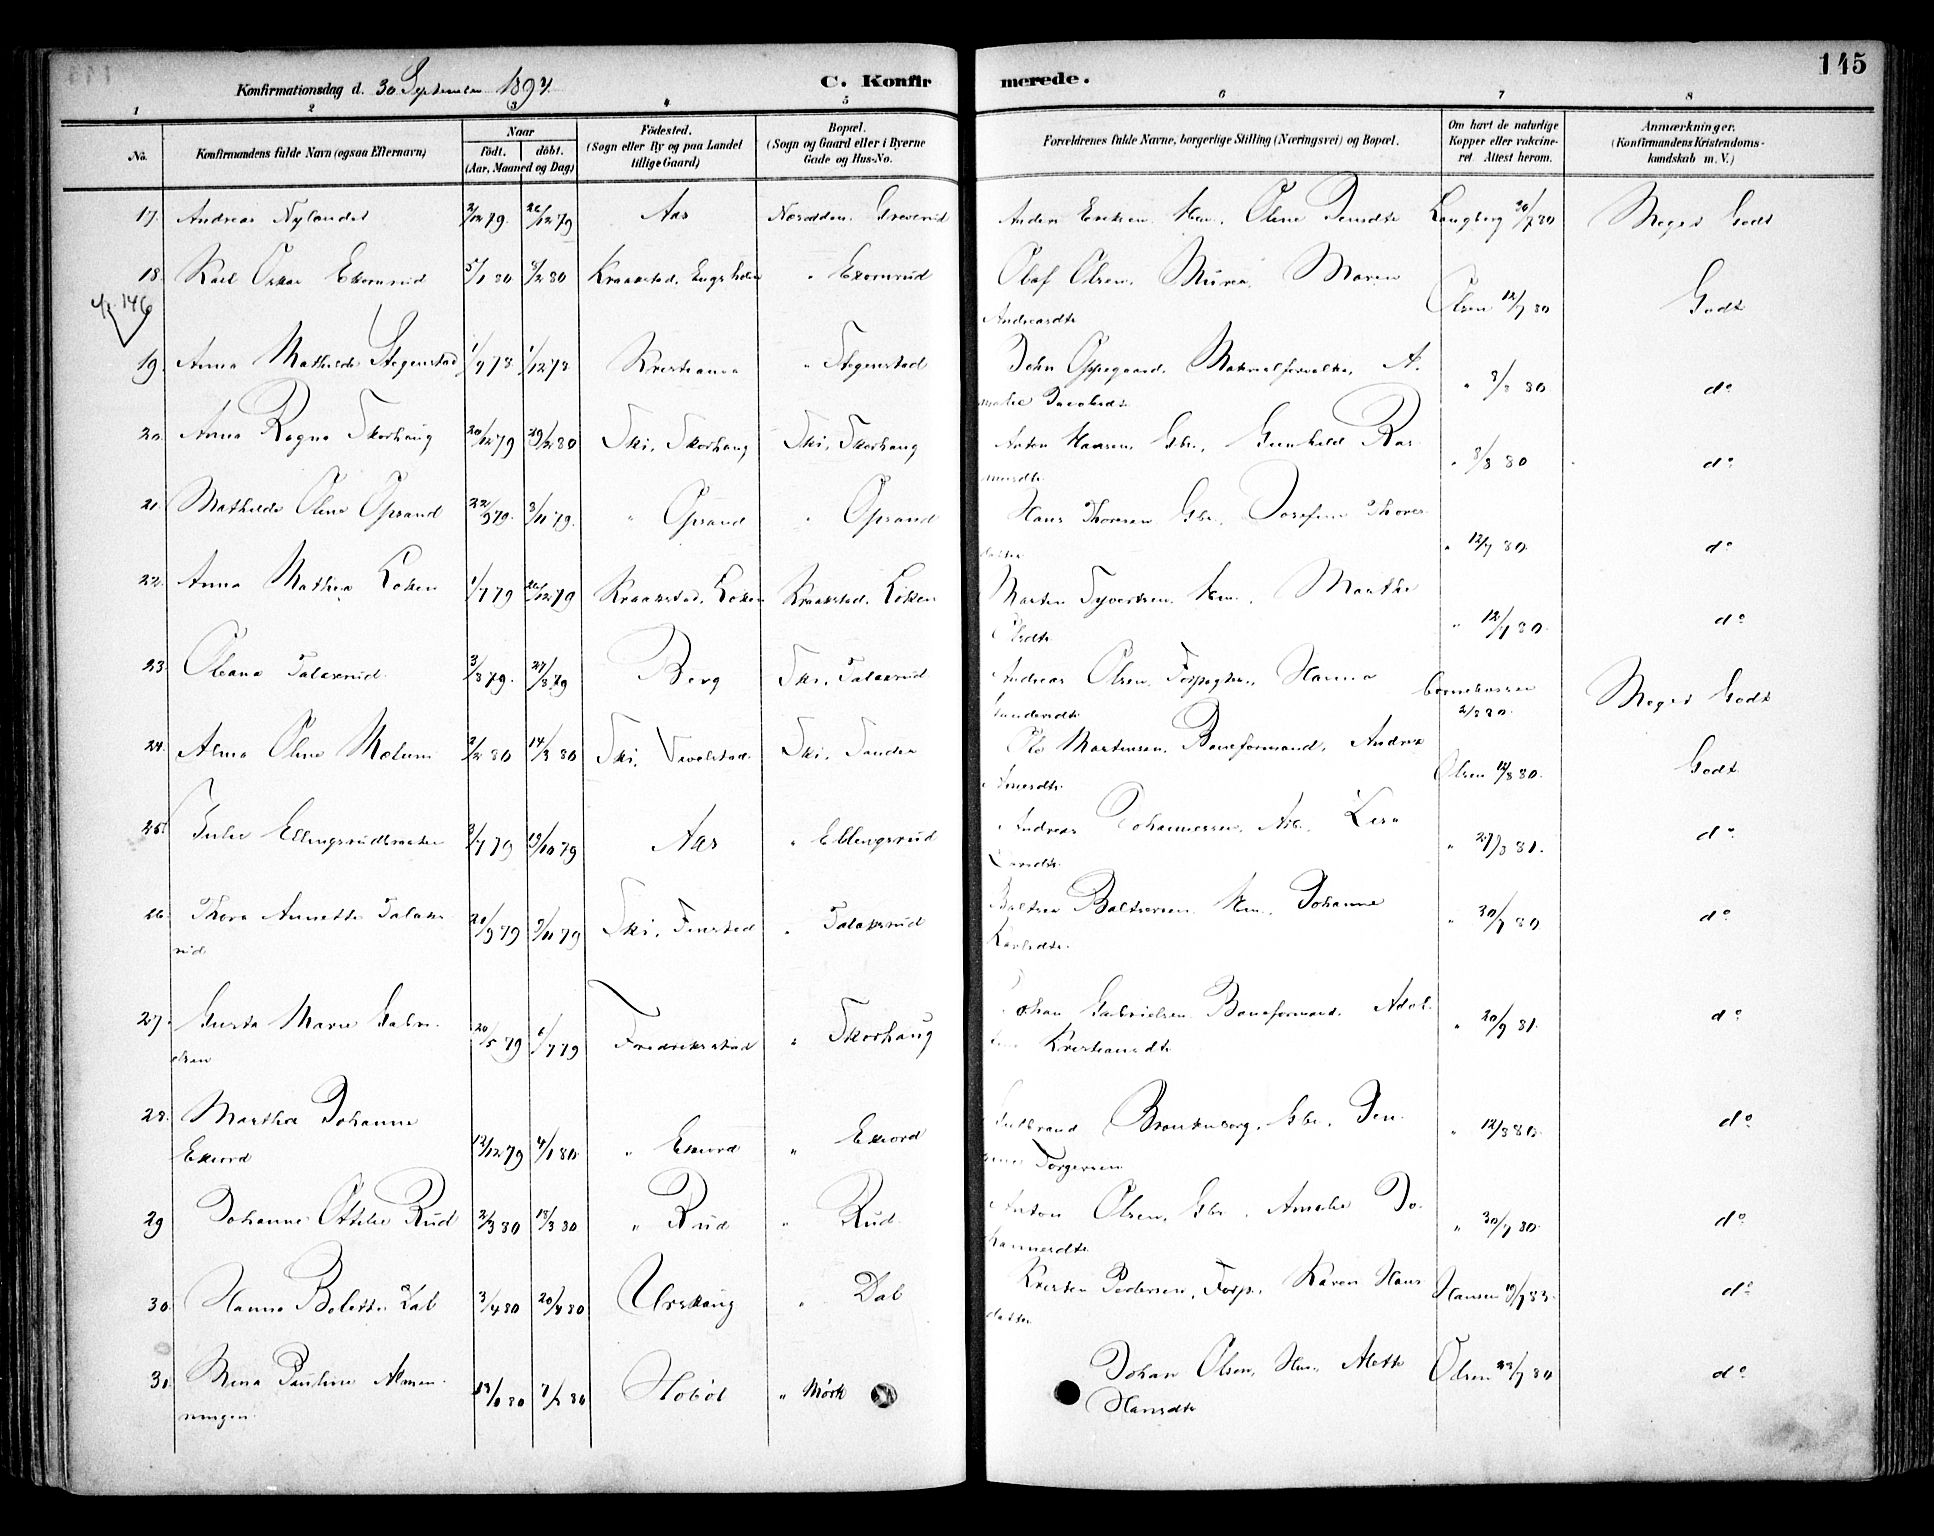 145
Konfirmationsdag d. 30 September 1894. C. Konfirmerede.
1 2 3 4 5 6 7 8
No. Konfirmandens fulde Navn (ogsaa Efternavn) Naar Födt. döbt. (Aar, Maaned og Dag) Födested. (Sogn eller By og paa Landet tillige Gaard) Bopæl. (Sogn og Gaard eller i Byerne Gade og Hus-No. Forældrenes fulde Navne, borgerlige Stilling (Næringsvei) og Bopæl. Om havt de naturlige Kopper eller vakcineret. Attest herom. Anmærkninger. (Konfirmandens Kristendomskundskab m. V.)
17. Andreas Nylandet 2/12 79. 26/12 79 Aas Næsodden, Greverud Anders Eriksen Hm., Oline Jensdtr Langberg 20/7 80 Meget Godt
18. Karl Oskar Ekornrud 5/1 80 8/2 80 Kraakstad, Engsholm " Ekornrud Olaf Olsen, Murer, Maren
Andreasdtr. Olsen 12/7 80 Godt
146
19. Anna Mathilde Stegenstad 1/9 78 1/12 78 Kristiania " Stegenstad John Oppegaard, Materialforvalter, A-
malie Jacobsdtr. " 8/8 80 do
20. Anna Ragna Skorhaug 20/12 79 29/2 80 Ski, Skorhaug Ski, Skorhaug Anton Hansen, Gbr., Gunhild Ras-
musdtr. " 8/8 80 do
21. Mathilde Oline Opsand 22/9 79. 3/11 79. " Opsand " Opsand Hans Thoresen Gbr., Josefine Thores-
datter " 12/7 80 do
22. Anna Mathea Løken 1/7 79 26/12 79 Kraakstad, Løken Kraakstad, Løken Martin Syvertsen, Hm., Marthe
Olsdtr. " 12/7 80. do
23. Oleana Talaksrud 3/3 79. 27/3 79 Berg Ski, Talaksrud Andreas Olsen, Hanna
2/8 80. Meget Godt
24. Alma Oline Mælum 2/2 80 14/3 80 Ski, Ski, Sander Ole Martinsen, Baneformand, Andrea
Olsen 12/8 80. Godt
25. Julie Ellingsrudbraaten 3/7 79 19/10 79 Aas " Ellingsrud Andreas Johannessen, Arb., Lisa
" 27/3 81. do
26. Thora Annette Talaks-
rud 20/9 79 9/11 79 Ski, Finstad " Talaksrud Baltser Baltsersen Hm., Johanne
Karlsdtr. " 30/7 80 do
27. Gusta Marie Gabri-
elsen 20/5 79 6/7 79 Fredriksstad " Skorhaug Johan Gabrielsen Baneformand, Adol-
Kristiansdtr " 20/9 81. do
28. Martha Johanne
Ekeord 12/12 79 4/1 80 " Ekeord " Ekeord Gulbrand Brandenborg, Gbr., Jen-
Torgersen " 12/8 80. do
29 Johanne Othilie Rud 2/3 80 18/3 80 " Rud " Rud. Anton Olsen, Gbr., Amalie Jo-
hannesdtr " 30/7 80. do
30. Hanna Bolette Dal 3/4 80 20/4 80 Urskoug " Dal Kristen Pedersen, Forp., Karen Hans-
datter Hansen 19/7 83. do
31. Rina Pauline Almen-
ningen. 7/3 80 Hobøl " Mørk Johan Olsen, Hm., Alette
Hansdtr Olsen 23/7 80 do